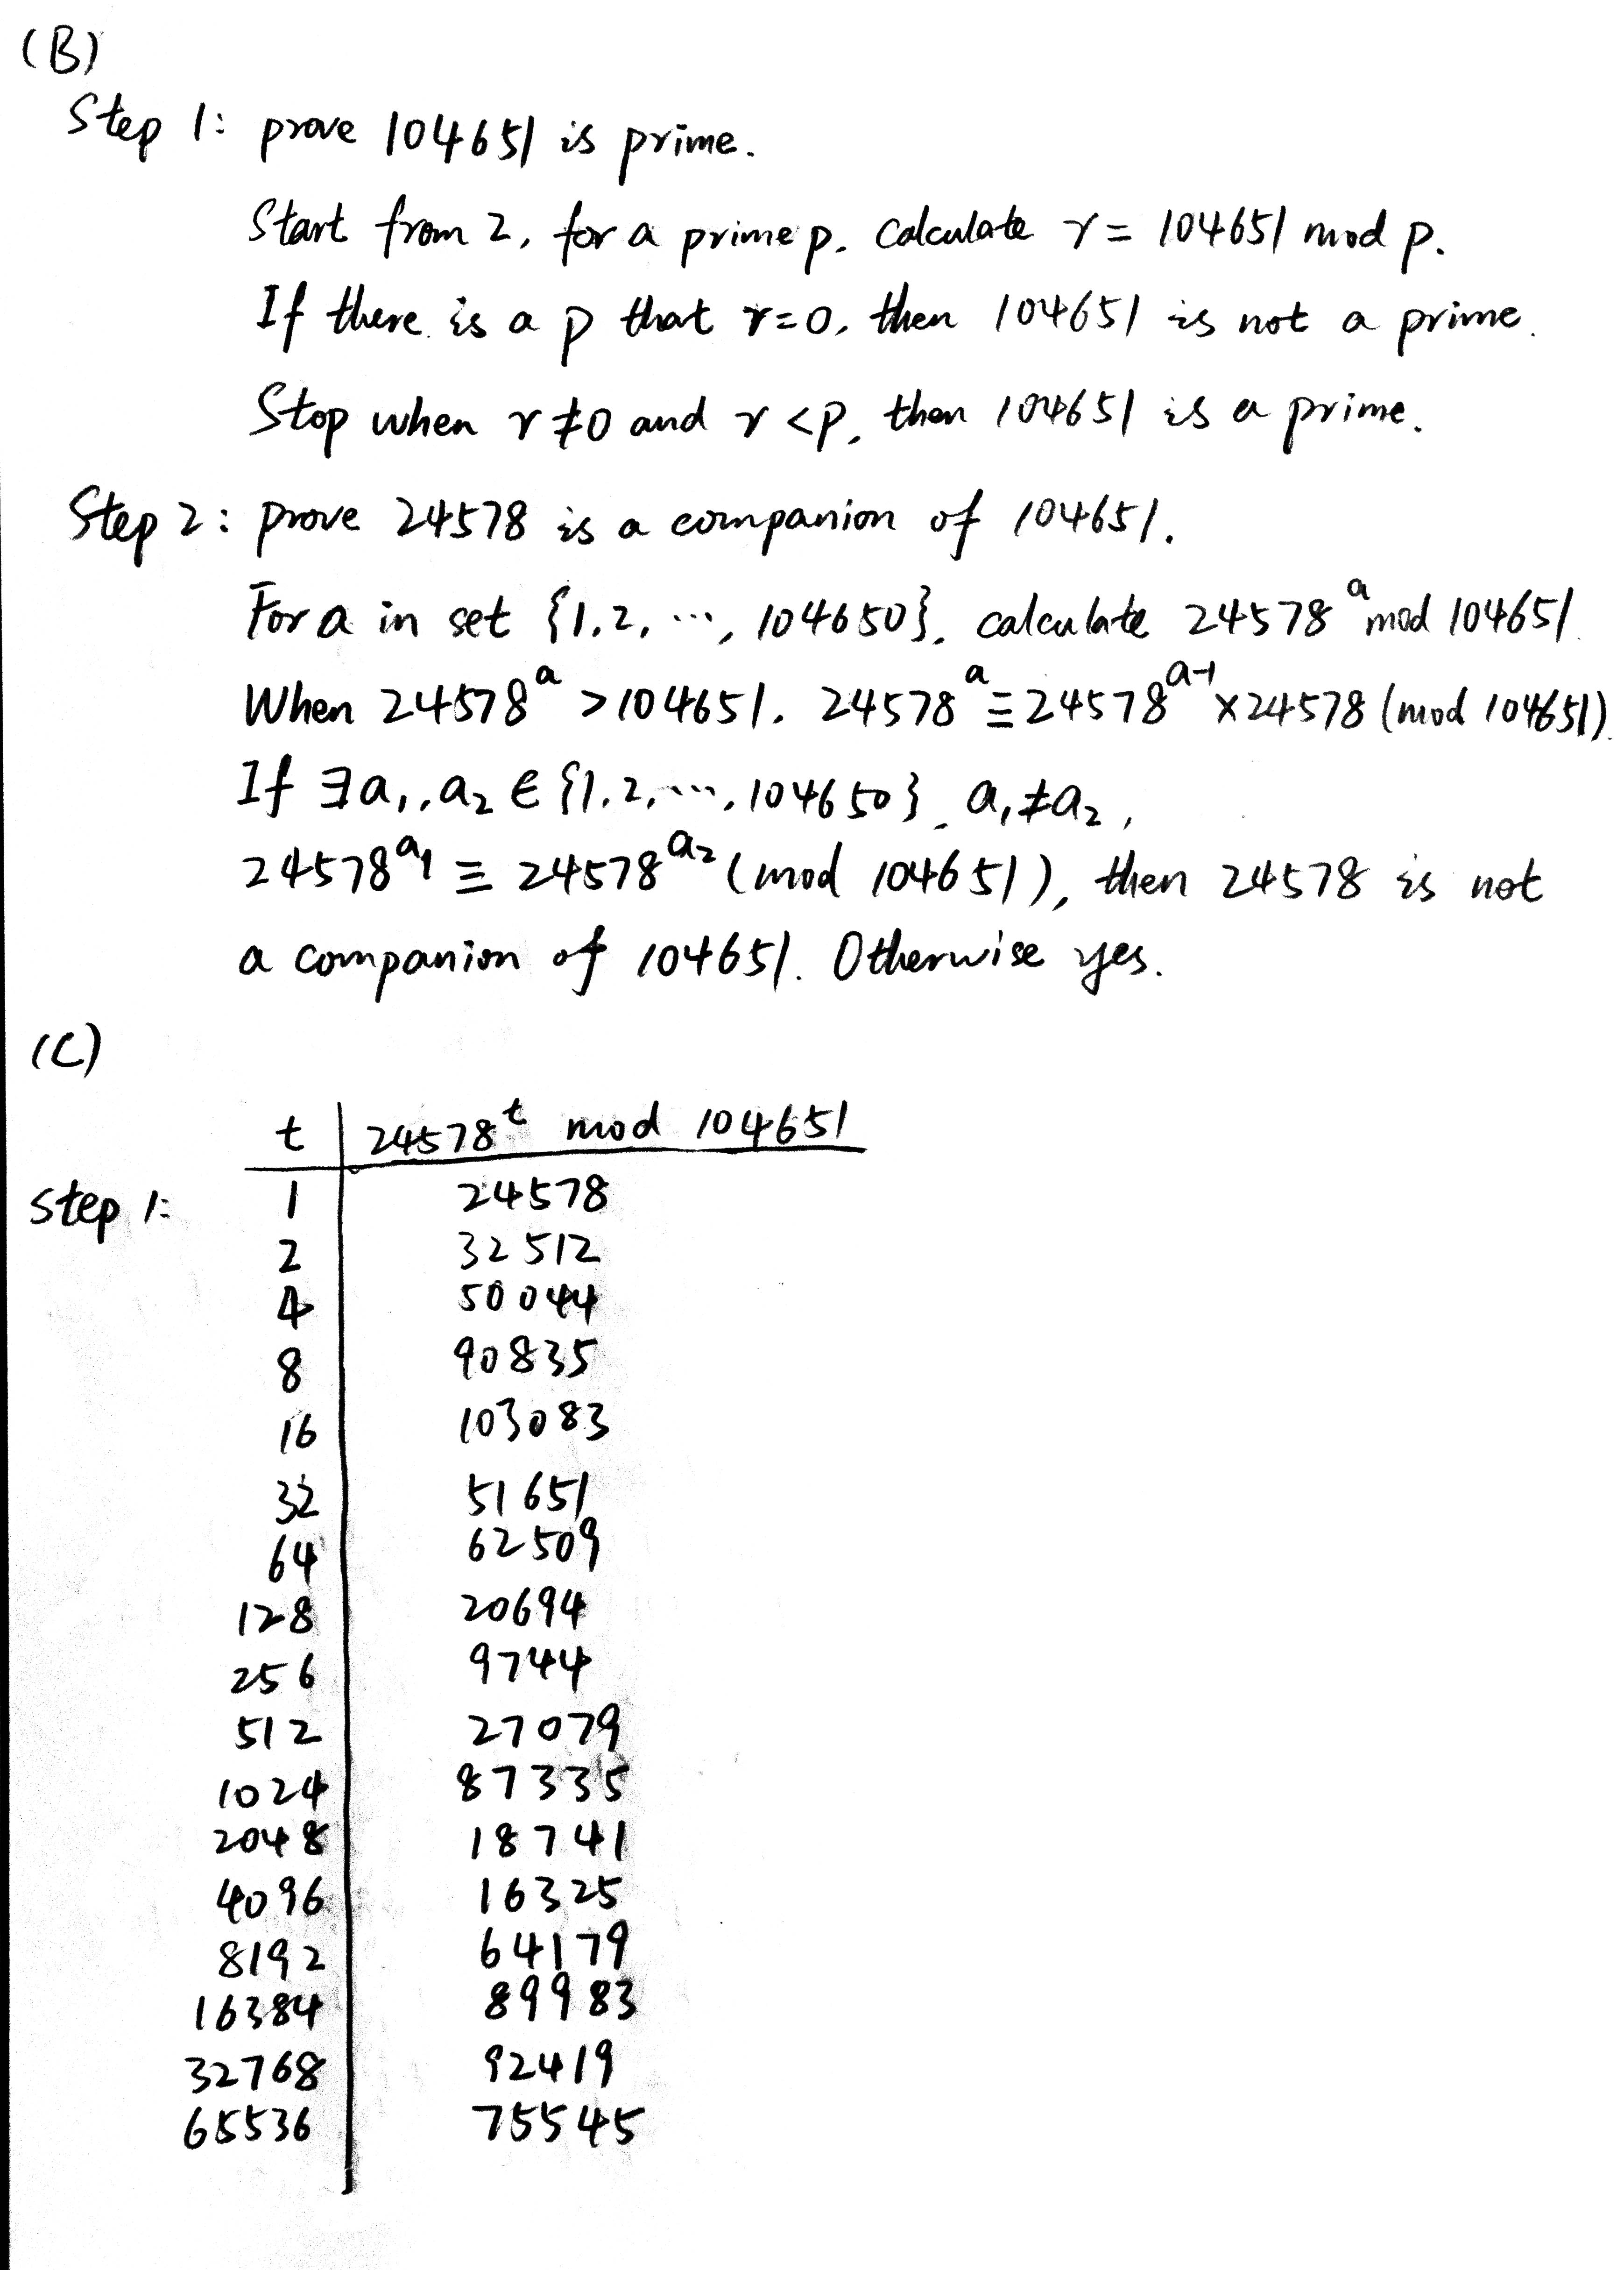 (B)
Step 1: prove 104651 is prime.
Start from 2, for a prime p. Calculate r = 104651 mod p.
If there is a p that r=0, then 104651 is not a prime.
Stop when r≠0 and r<p, then 104651 is a prime.
Step 2: prove 24578 is a companion of 104651.
For a in set {1,2,…, 104650}, calculate 24578^a mod 104651.
When 24578^a > 104651. 24578^a ≡ 24578^(a-1) × 24578 (mod 104651).
If ∃a₁, a₂ ∈ {1,2,…,104650}, a₁≠a₂,
24578^a₁ ≡ 24578^a₂ (mod 104651), then 24578 is not
a companion of 104651. Otherwise yes.
(C)
t | 24578^t mod 104651
Step 1: 1 | 24578
2 | 32512
4 | 50044
8 | 90835
16 | 103083
32 | 51651
64 | 62509
128 | 20694
256 | 9744
512 | 27079
1024 | 87335
2048 | 18741
4096 | 16325
8192 | 64179
16384 | 89983
32768 | 92419
65536 | 75545